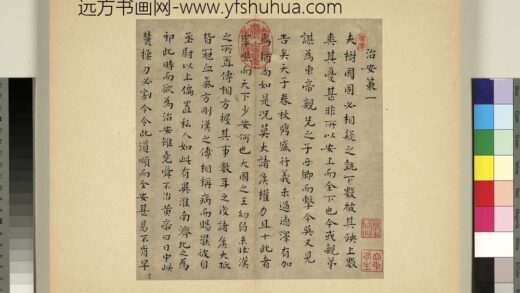 远方书画网-www.yfshuhua.com
治安策一
夫樹國固必相疑之埶下數被其殃上數
爽其憂甚非所以安上而全下也今或親弟
謀為東帝親兄之子西鄉而擊今吳又見
告矣天子春秋鼎盛行義未過德澤有加
焉猶尚如是況莫大諸侯權力且十此者
而天下少安何也大國之王幼弱未壯漢
之所置傅相方握其事數年之後諸侯大抵
皆冠血氣方剛漢之傅相稱病而賜罷彼自
丞尉以上徧置私人如此有異淮南濟北之為
邪此時而欲為治安雖堯舜不治黃帝曰日中必
操刀必割今令此道順而全安甚易不肯早